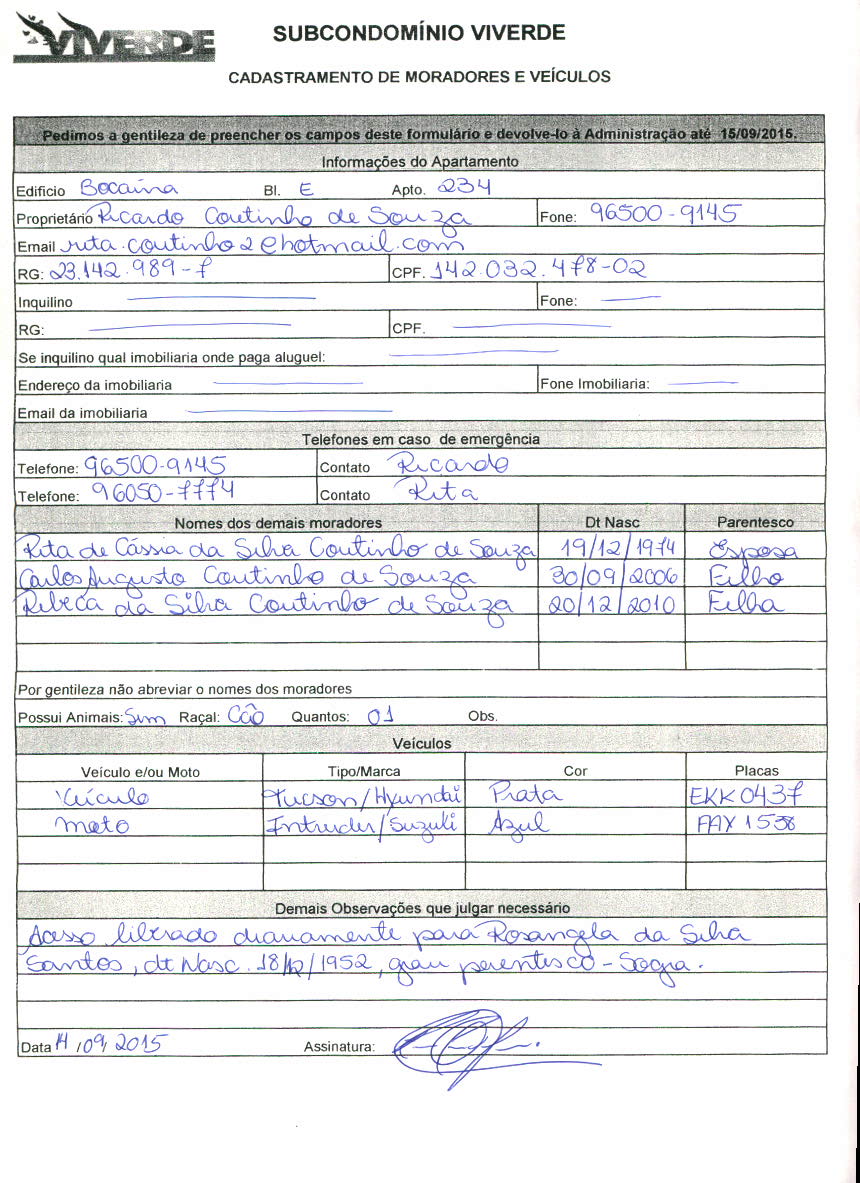 VIVERDE
SUBCONDOMÍNIO VIVERDE
CADASTRAMENTO DE MORADORES E VEÍCULOS
Pedimos a gentileza de preencher os campos deste formulário e devolve-lo à Administração até 15/09/2015.
Informações do Apartamento
Edificio Bocaina Bl. E Apto. 234
Proprietário Ricardo Coutinho de Souza Fone: 96500-9145
Email rita.coutinho2@hotmail.com
RG: 23.142.989-7 CPF. 142.032.478-02
Inquilino Fone:
RG: CPF.
Se inquilino qual imobiliaria onde paga aluguel:
Endereço da imobiliaria Fone Imobiliaria:
Email da imobiliaria
Telefones em caso de emergência
Telefone: 96500-9145 Contato Ricardo
Telefone: 96050-7774 Contato Rita
Nomes dos demais moradores Dt Nasc Parentesco
Rita de Cássia da Silva Coutinho de Souza 19/12/1974 Esposa
Carlos Augusto Coutinho de Souza 30/09/2006 Filho
Rebeca da Silva Coutinho de Souza 20/12/2010 Filha
Por gentileza não abreviar o nomes dos moradores
Possui Animais: Sim Raçal: Cão Quantos: 01 Obs.
Veículos
Veículo e/ou Moto Tipo/Marca Cor Placas
Veículo Tucson/Hyundai Prata EKK 0437
moto Intruder/Suzuki Azul FAX 1538
Demais Observações que julgar necessário
Acesso liberado diariamente para Rosangela da Silva
Santos, dt Nasc. 18/12/1952, grau parentesco - Sogra.
Data 14/09/2015 Assinatura: